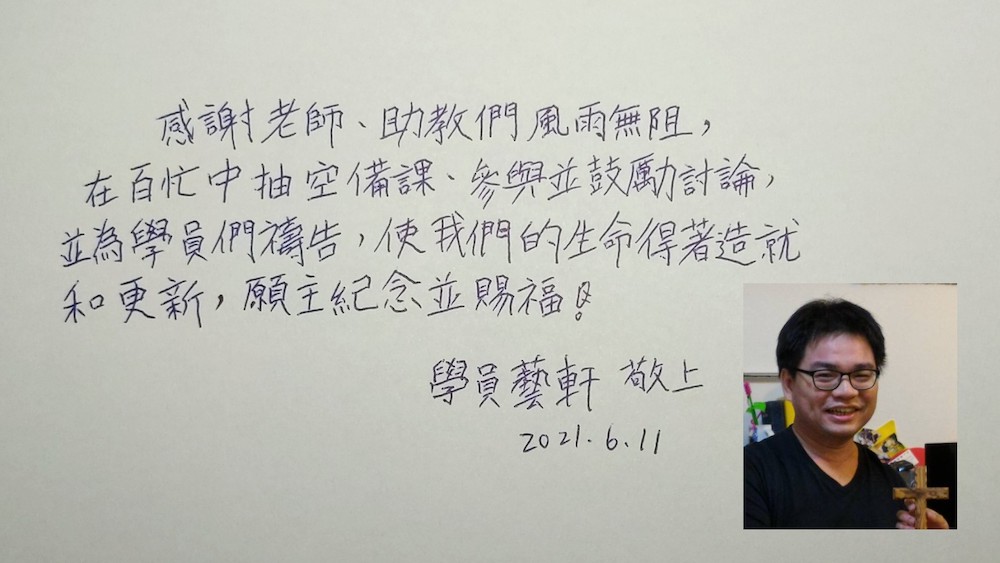 感謝老師、助教們風雨無阻，
在百忙中抽空備課、參與並鼓勵討論，
並為學員們禱告，使我們的生命得著造就
和更新，願主紀念並賜福！
學員藝軒 敬上
2021.6.11